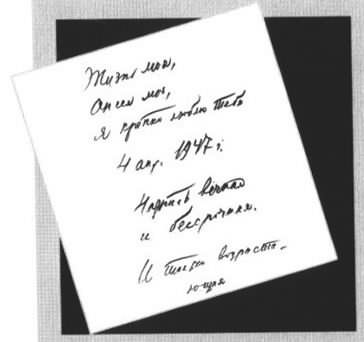 Жизнь моя,
Ангел мой,
я крепко люблю Тебя
4 апр. 1947 г.
Надпись вечная
и бессрочная.
И только возрастаю-
ющая